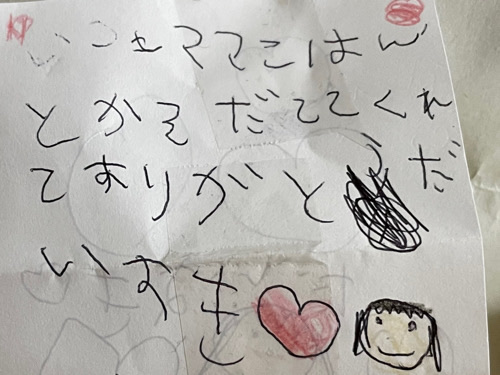 いつもママごはん
とかそだててくれ
てありがとうだ
いすき